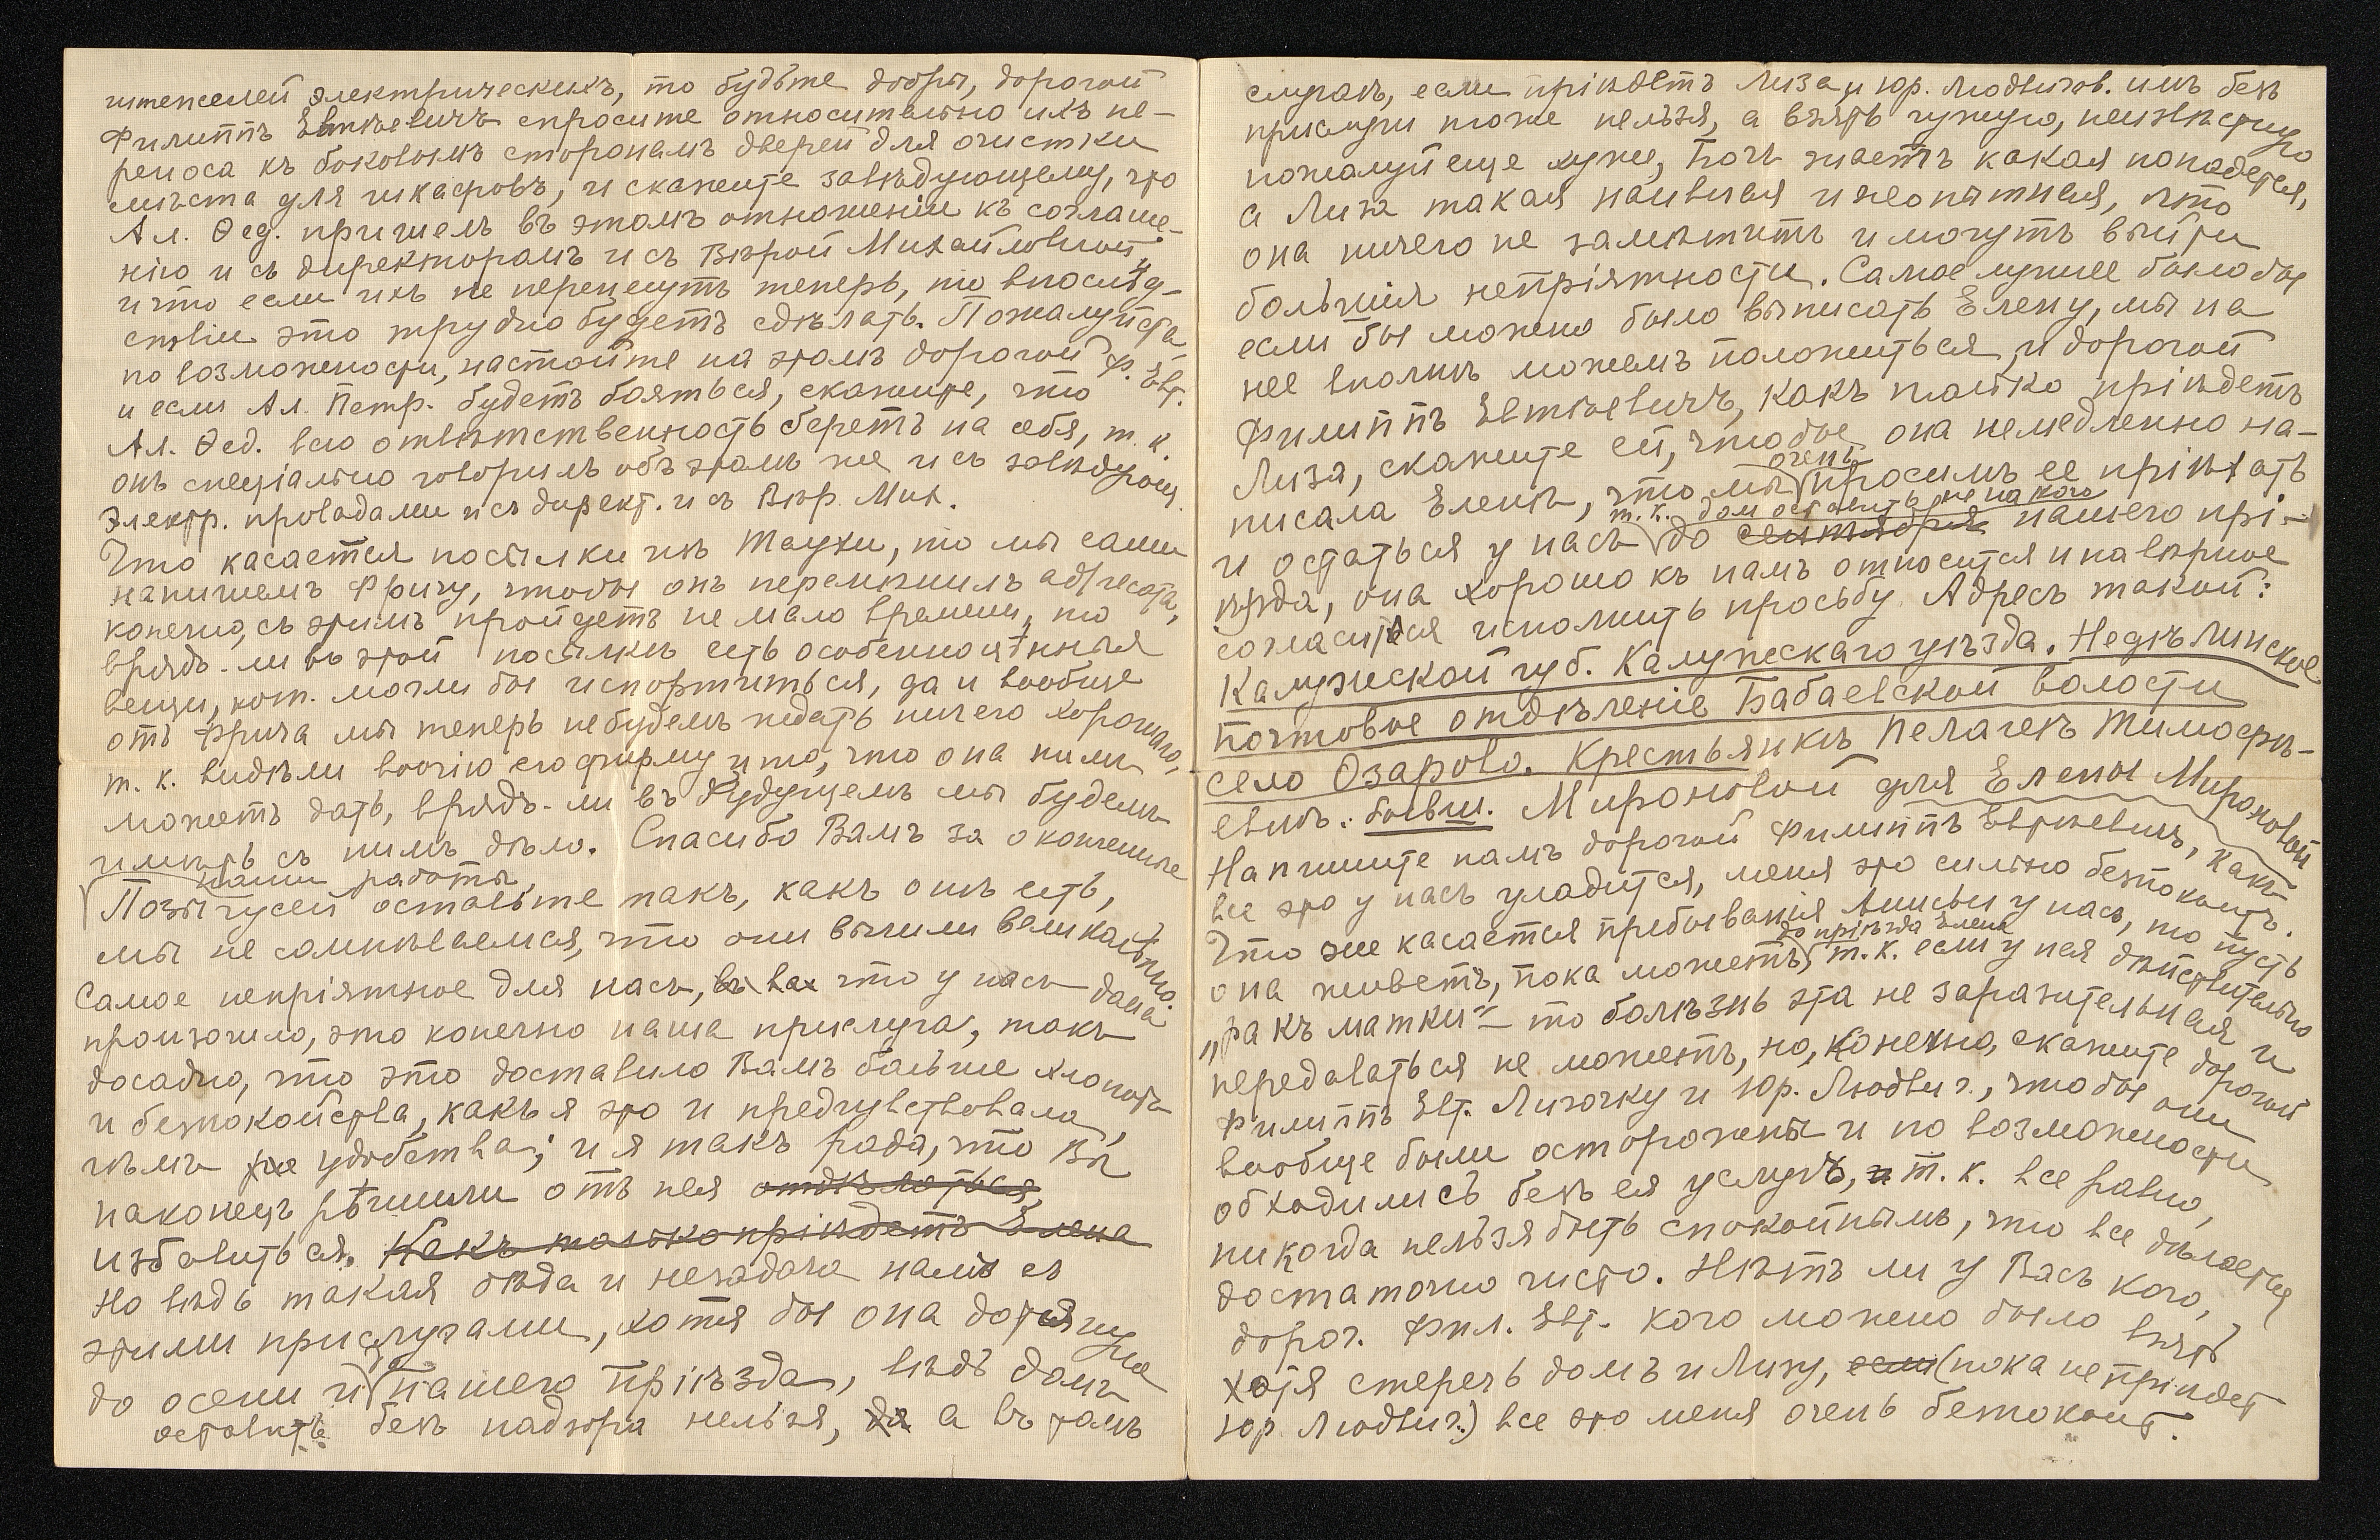 штепселей электрическихъ, то будьте добры, дорогой
Филиппъ Евтьевичъ спросите относительно ихъ пе-
реноса къ боковымъ сторонамъ дверей для очистки
мѣста для шкафовъ, и скажите завѣдующему, что
Ал. Ѳед. пришелъ въ этомъ отношеніи къ соглаше-
нію и съ директоромъ и съ Вѣрой Михайловной
и что если ихъ не перенесутъ теперь, то впослѣд-
ствіи это трудно будетъ сдѣлать. Пожалуйста
по возможности, настойте на этомъ дорогой Ф. Евт.
и если Ал. Петр. будетъ бояться, скажите, что
Ал. Ѳед. всю отвѣтственность беретъ на себя, т. к.
онъ спеціально говорилъ объ этомъ же и съ завѣдующ.
электр. проводами и съ директ. и съ Вѣр. Мих.
Что касается посылки изъ Таухи, то мы сами
напишемъ Фричу, чтобы онъ перемѣнилъ адресата,
конечно, съ этимъ пройдетъ не мало времени, но
врядъ-ли въ этой посылкѣ есть особенно цѣнныя
вещи, кот. могли бы испортиться, да и вообще
отъ Фрича мы теперь не будемъ ждать ничего хорошаго,
т. к. видѣли воочію его фирму и то, что она намъ
можетъ дать, врядъ-ли въ будущемъ мы будемъ
имѣть съ нимъ дѣло. Спасибо Вамъ за окончаніе
нашей работы
Позы гусей оставьте такъ, какъ онѣ есть,
мы не сомнѣваемся, что они вышли великолѣпно.
Самое непріятное для насъ, въ ва что у насъ дома
произошло, это конечно наша прислуга, такъ
досадно, что это доставило Вамъ больше хлопотъ
и безпокойства, какъ я это и предчувствовала,
чѣмъ удобства; и я такъ рада, что Вы
наконецъ рѣшили отъ нея отдѣлаться
избавиться. Какъ только пріѣдетъ Елена
Но вѣдь такая бѣда и незадача намъ съ
этими прислугами, хотя бы она дотянула
до осени и до нашего пріѣзда, вѣдь домъ
оставить безъ надзора нельзя, да а въ томъ
случаѣ, если пріѣдетъ Лиза и Юр. Людвигов. имъ безъ
прислуги тоже нельзя, а взять чужую, неизвѣстную
пожалуй еще хуже, Богъ знаетъ какая попадется,
а Лиза такая наивная и неопытная, что
она ничего не замѣтитъ и могутъ выйти
большія непріятности. Самое лучшее было бы
если бы можно было выписать Елену, мы на
нее вполнѣ можемъ положиться, и дорогой
Филиппъ Евтьевичъ, какъ только пріѣдетъ
Лиза, скажите ей, чтобы она немедленно на-
писала Еленѣ, что мы очень просимъ ее пріѣхать
и остаться у насъ т. к. домъ оставить не на кого до сентября нашего прі-
ѣзда, она хорошо къ намъ относится и навѣрное
согласится исполнить просьбу. Адресъ такой:
Калужской губ. Калужскаго уѣзда. Недѣлинское
почтовое отдѣленіе Бабаевской волости
село Озарово. Крестьянкѣ Пелагеѣ Тимофѣ-
евнѣ. бывш. Мироновой для Елены Мироновой
Напишите намъ дорогой Филиппъ Евтьевичъ, какъ
все это у насъ уладится, меня это сильно безпокоитъ.
Что же касается пребыванія Анисьи у насъ, то пусть
она живетъ, пока можетъ, до пріѣзда Елены т. к. если у нея дѣйствительно
„ракъ матки“ – то болѣзнь эта не заразительная и
передаваться не можетъ, но, конечно, скажите дорогой
Филиппъ Евт. Лизочку и Юр. Людвиг., чтобы они
вообще были осторожны и по возможности
обходились безъ ея услугъ, и т. к. все равно,
никогда нельзя быть спокойнымъ, что все дѣлается
достаточно чисто. Нѣтъ ли у Васъ кого,
дорог. Фил. Евт. кого можно было взять
хотя стеречь домъ и Лизу, если (пока не пріѣдет
Юр. Людвиг.) все это меня очень безпокоит.